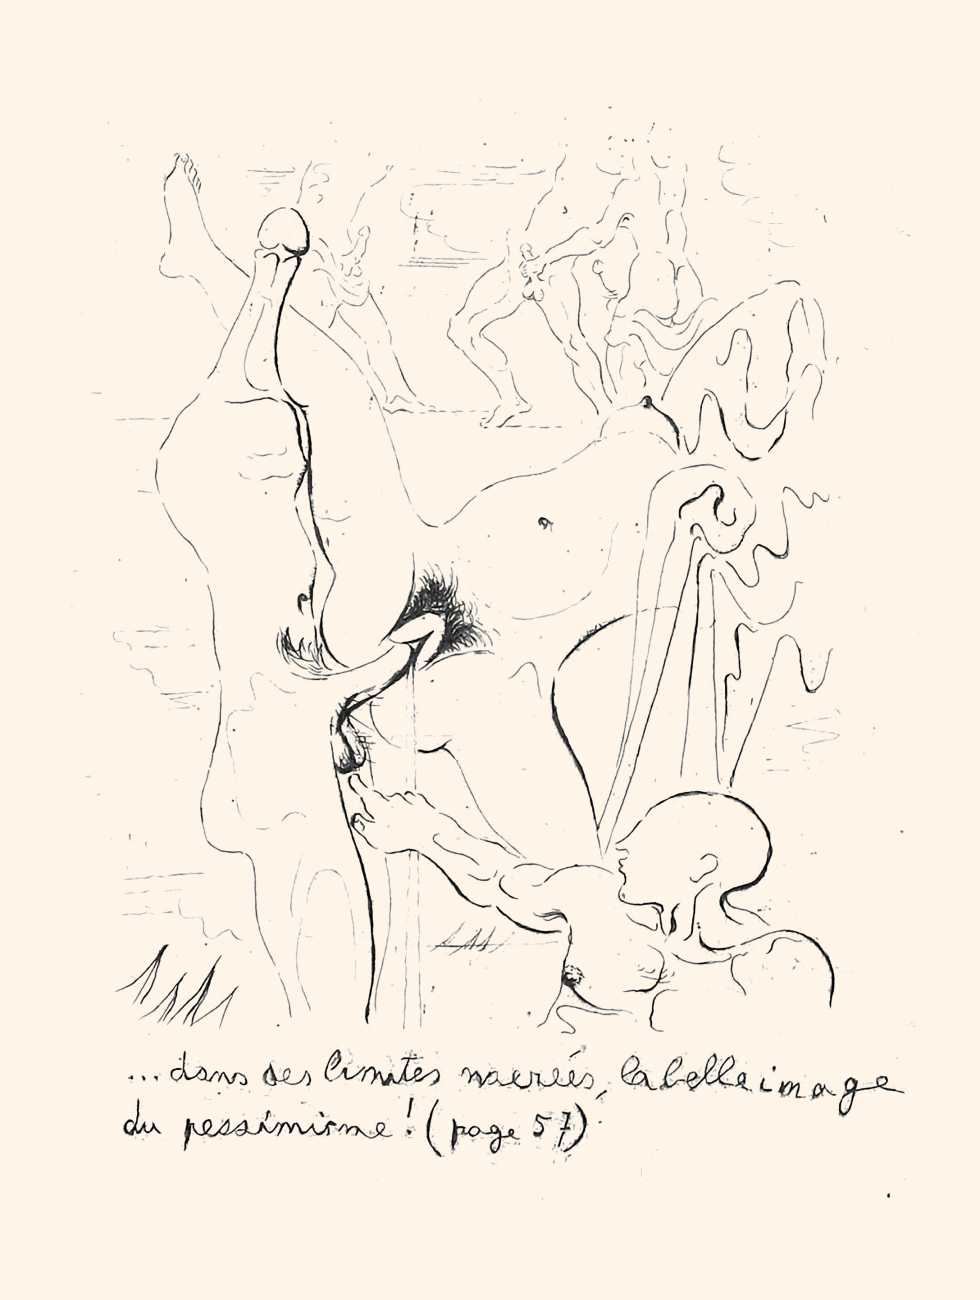 ... dans ses limites nacrées, la belle image
du pessimisme ! (page 57)